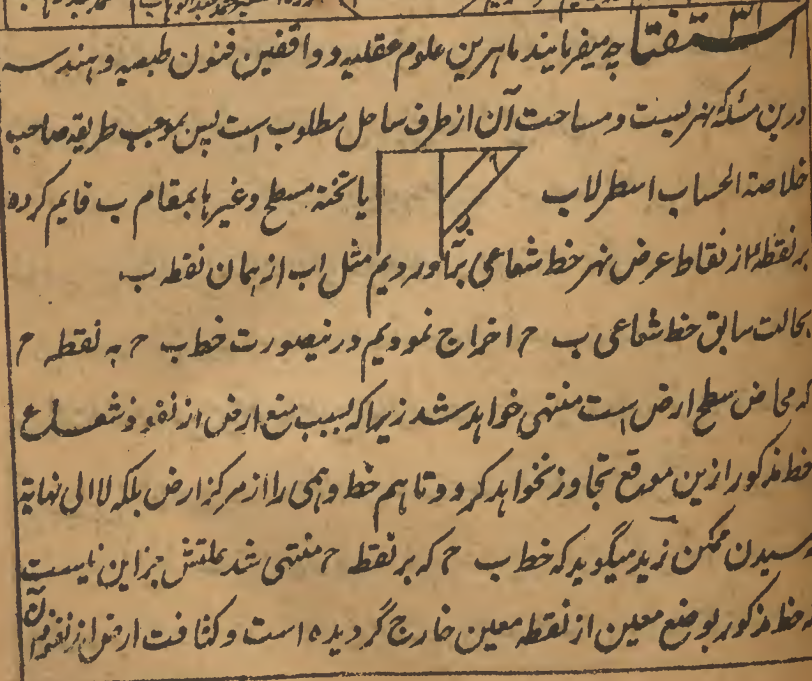 استفتا چه میفرمایند ماہرین علوم عقلیہ و واقفین فنون طبعیہ و ہندسہ
درین مسئلہ کہ نہریست و مساحت آن از طرف ساحل مطلوب است پس بموجب طریقہ صاحب
خلاصة الحساب اسطرلاب یا تختہ مسطح و غیرہا بمقام ب قایم کردہ
بر نقطۂ از نقاط عرض نہر خط شعاعی برآوردیم مثل اب از ہمان نقطہ ب
بحالت سابق خط شعاعی ب ح اخراج نمودیم درینصورت خط ب ح بہ نقطہ ح
کہ محاض سطح ارض است منتہی خواہد شد زیرا کہ بسبب منع ارض از نفوذ شعاع
خط مذکور ازین موقع تجاوز نخواہد کرد و تاہم خط وہمی را از مرکز ارض بلکہ لا الی نہایة
رسیدن ممکن زید میگوید کہ خط ب ح کہ بر نقطہ ح منتہی شد علتش جز این نیست
کہ خط مذکور بوضع معین از نقطہ معین خارج گردیدہ است و کثافت ارض از نفوذ آن